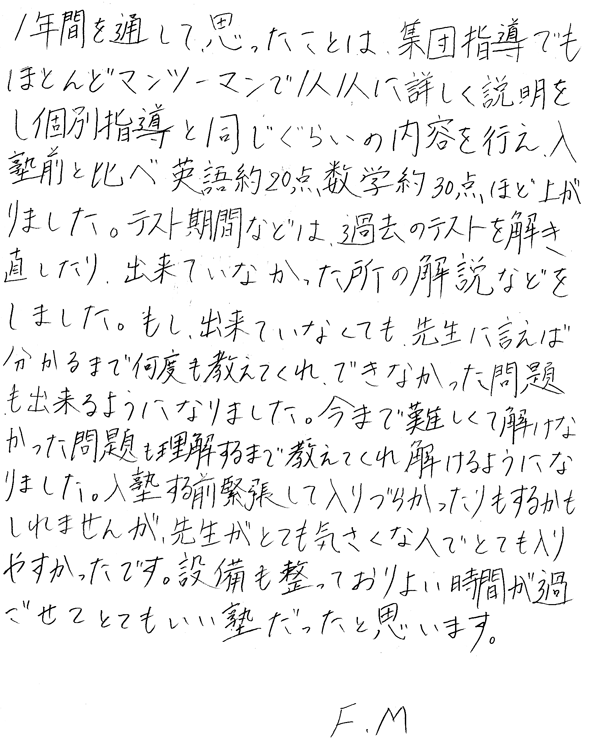 1年間を通して、思ったことは、集団指導でも
ほとんどマンツーマンで1人1人に詳しく説明を
し個別指導と同じぐらいの内容を行え、入
塾前と比べ英語約20点、数学約30点、ほど上が
りました。テスト期間などは、過去のテストを解き
直したり、出来ていなかった所の解説などを
しました。もし、出来ていなくても、先生に言えば
分かるまで何度も教えてくれ、できなかった問題
も出来るようになりました。今まで難しくて解けな
かった問題も理解するまで教えてくれ解けるようにな
りました。入塾する前緊張して入りづらかったりもするかも
しれませんが、先生がとても気さくな人でとても入り
やすかったです。設備も整っておりよい時間が過
ごせてとてもいい塾だったと思います。
F.M